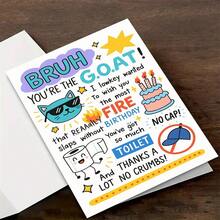 BRUH
YOU'RE THE G.O.A.T!
I lowkey wanted
To wish you
the most
FIRE
BIRTHDAY
that REALLY
slaps without
NO CAP!
You've got
so much
TOILET
And
THANKS A
LOT NO CRUMBS!